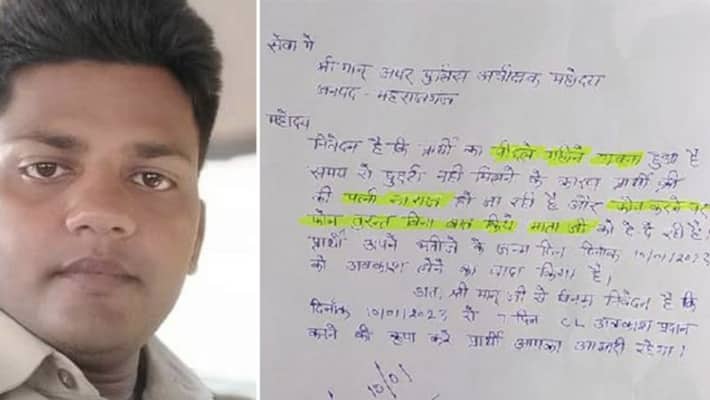 सेवा में
श्रीमान् अपर पुलिस अधीक्षक महोदय
जनपद - महराजगंज
महोदय
निवेदन है कि प्रार्थी का पीछले महिने शादी हुआ है
समय से छुट्टी नही मिलने के कारण प्रार्थी
की पत्नी नाराज हो जा रही है और फोन करने पर
फोन तुरन्त बिना बात किये माता जी को दे दे रही है।
प्रार्थी अपने भतीजे के जन्म दिन दिनांक 10/01/2023
को अवकाश लेने का वादा किया है।
अतः श्री मान् जी से विनम्र निवेदन है कि
दिनांक 10/01/2023 से 7 दिन CL अवकाश प्रदान
करने की कृपा करे प्रार्थी आपका आभारी रहेगा।
10/01